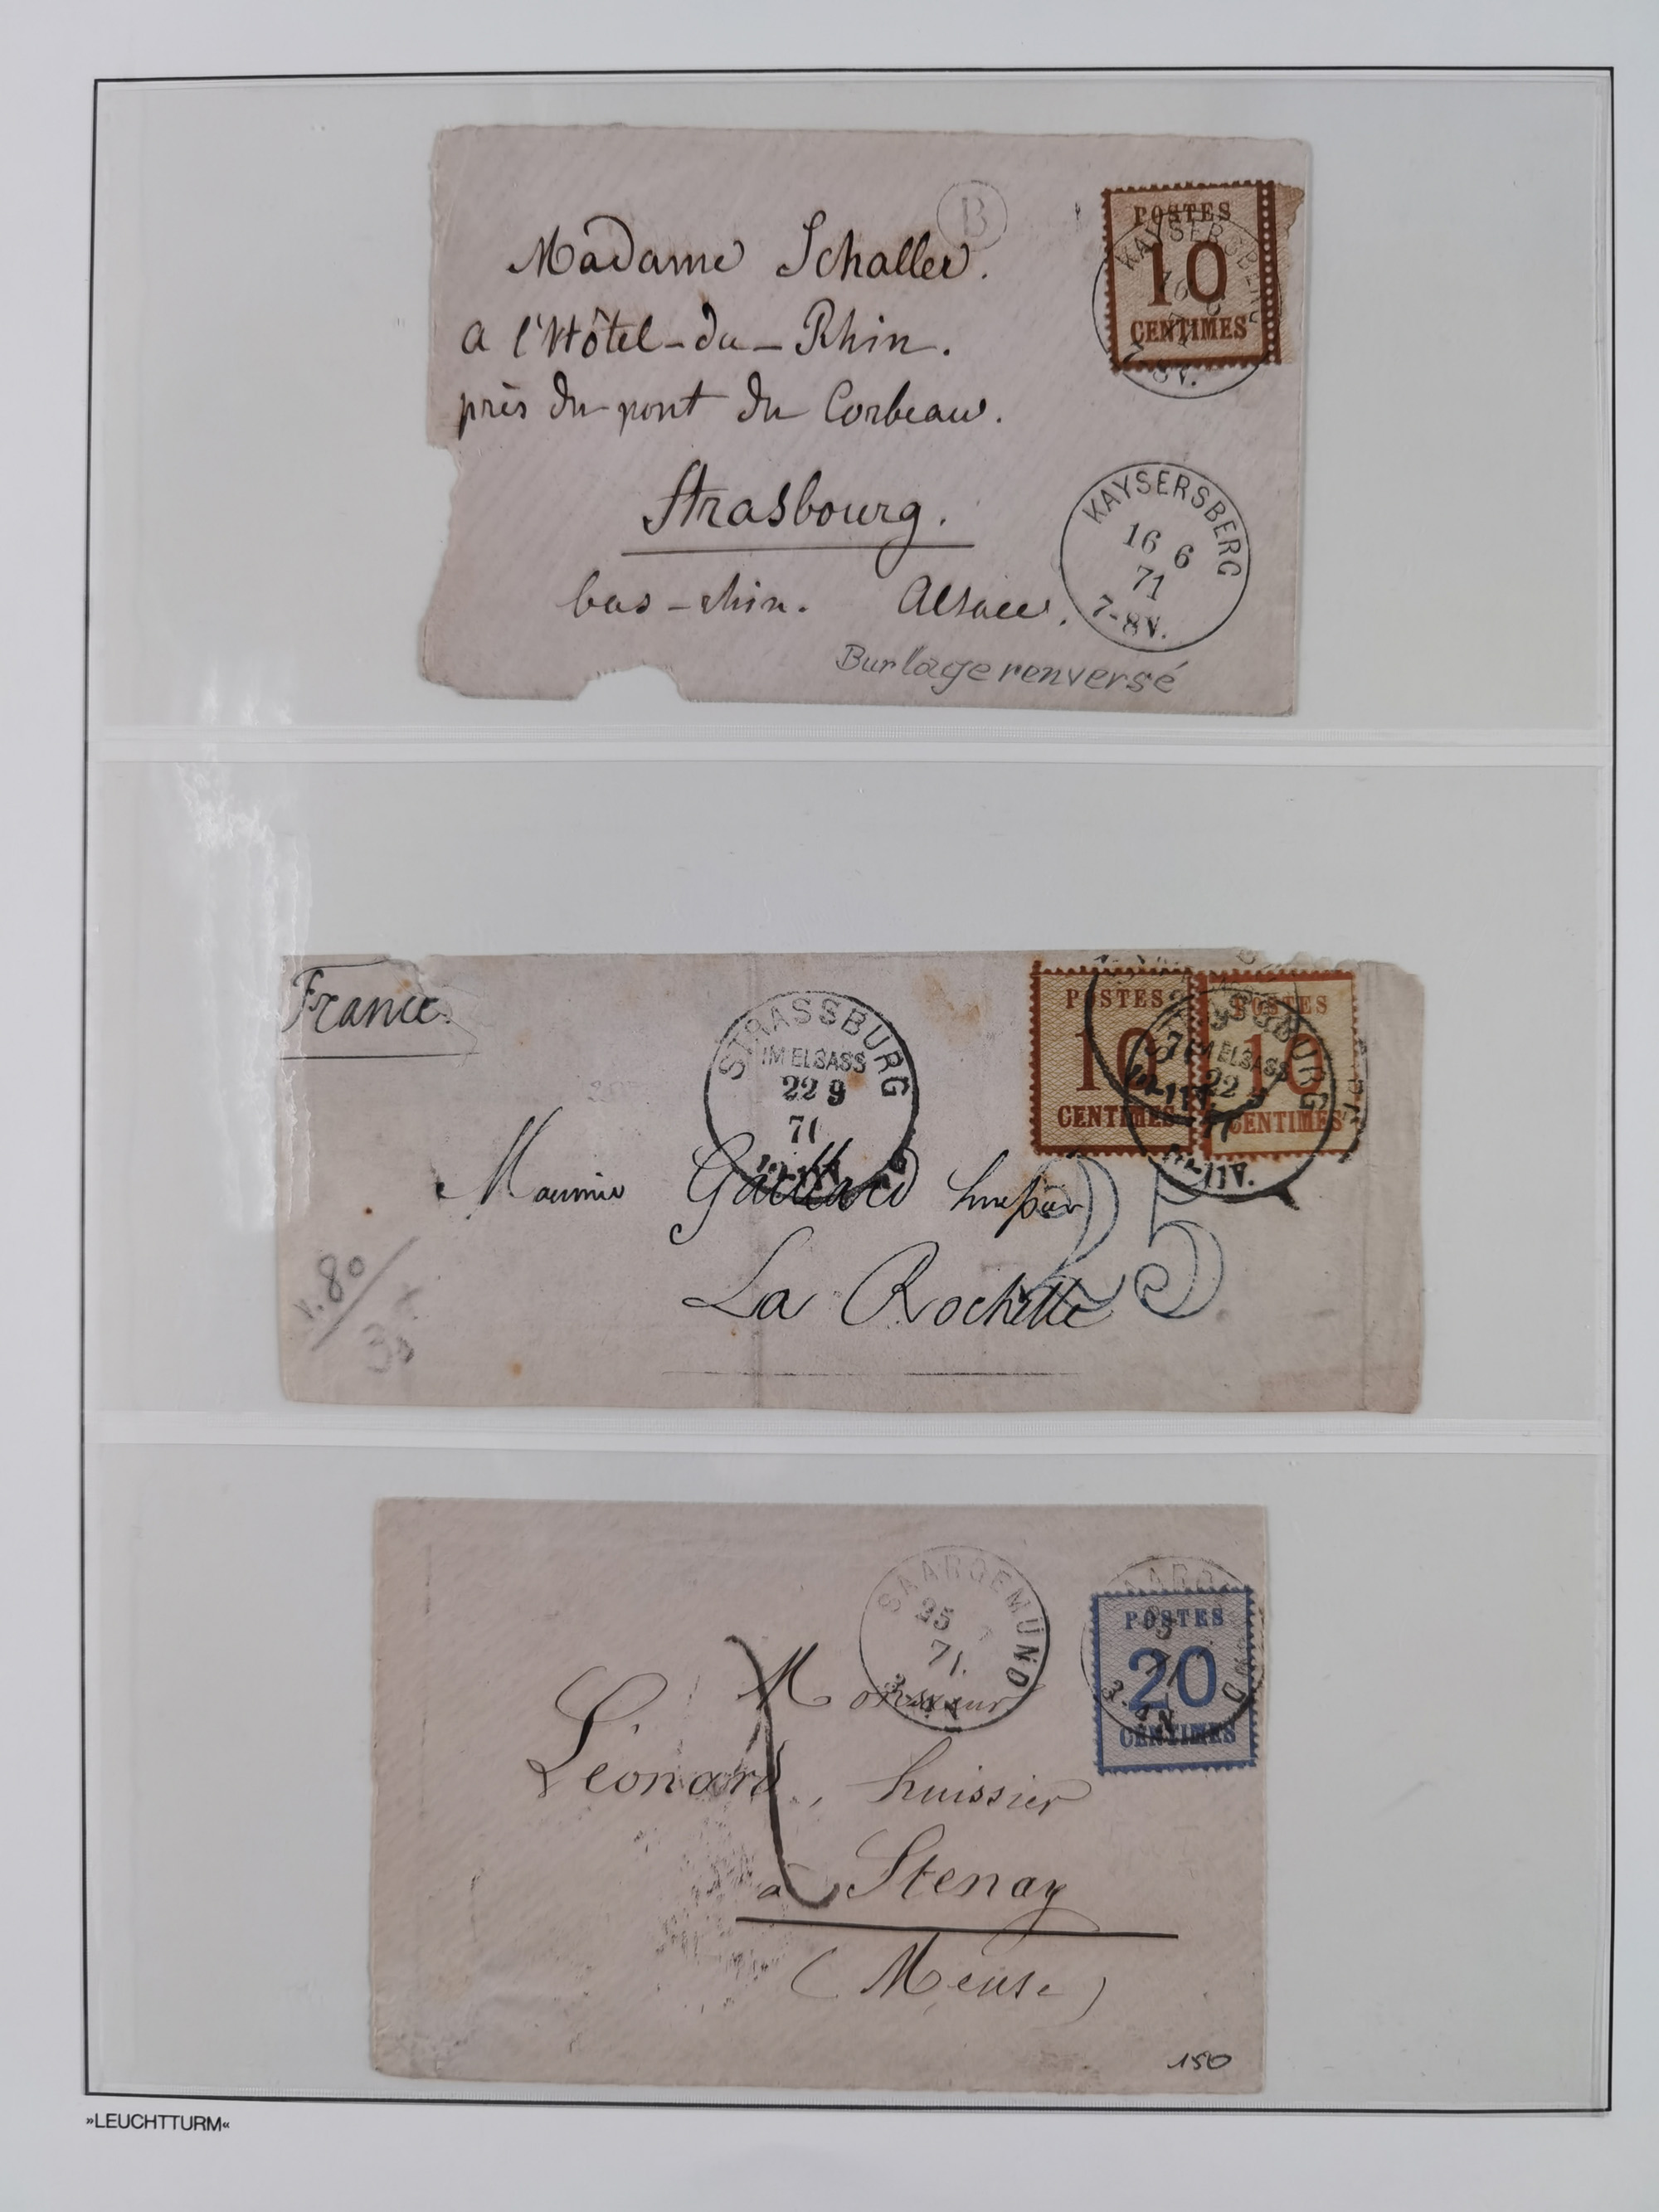 B
Madame Schaller.
a l'Hôtel-du-Rhin.
près du pont du Corbeau.
Strasbourg.
bas-rhin. Alsace.
Burlage renversé
POSTES
10
CENTIMES
KAYSERSBERG
16 6
71
7-8V.
France
STRASSBURG
IM ELSASS
22 9
71
POSTES
10
CENTIMES
POSTES
10
CENTIMES
STRASSBURG
IM ELSASS
22 9
71
10-11V.
Gaillard
La Rochelle
25
v. 80
SAARGEMÜND
25
71.
POSTES
20
CENTIMES
Monsieur
Léonard, huissier
a Stenay
(Meuse)
150
»LEUCHTTURM«